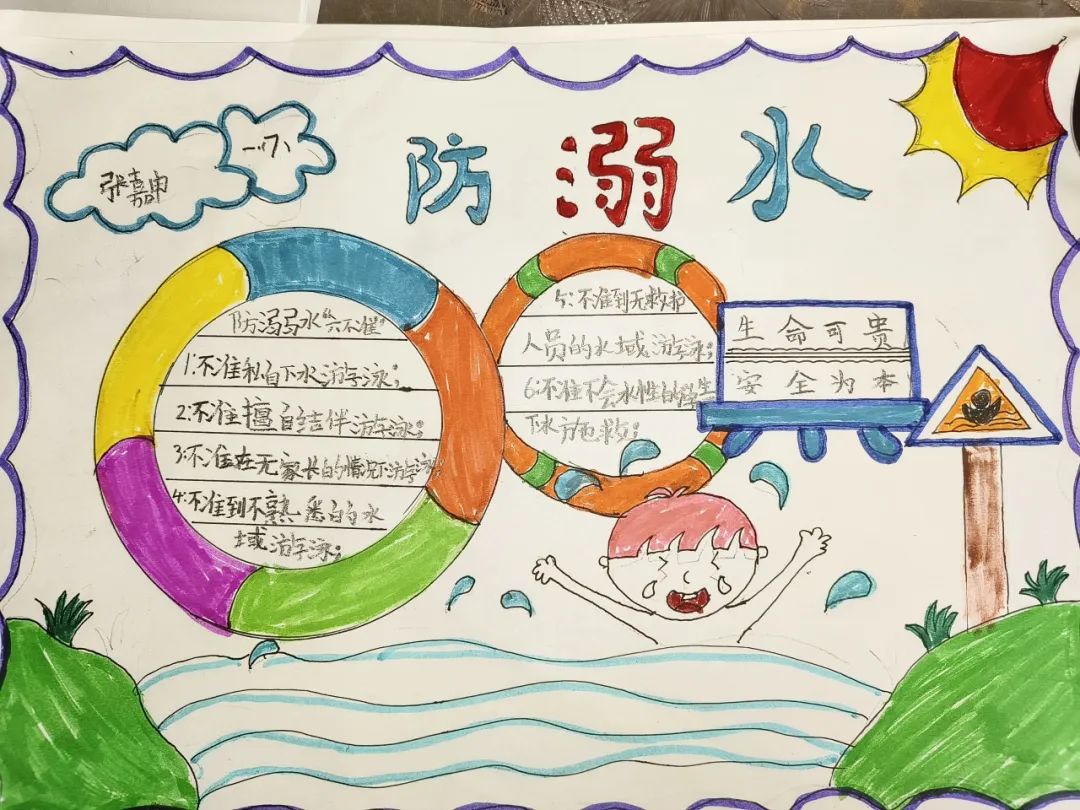 防溺水
张嘉申
一.7
防溺水“六不准”
1:不准私自下水游泳;
2:不准擅自结伴游泳;
3:不准在无家长的情况下游泳;
4:不准到不熟悉的水
域游泳;
5:不准到无救护
人员的水域游泳;
6:不准不会水性的学生
下水施救;
生命可贵
安全为本